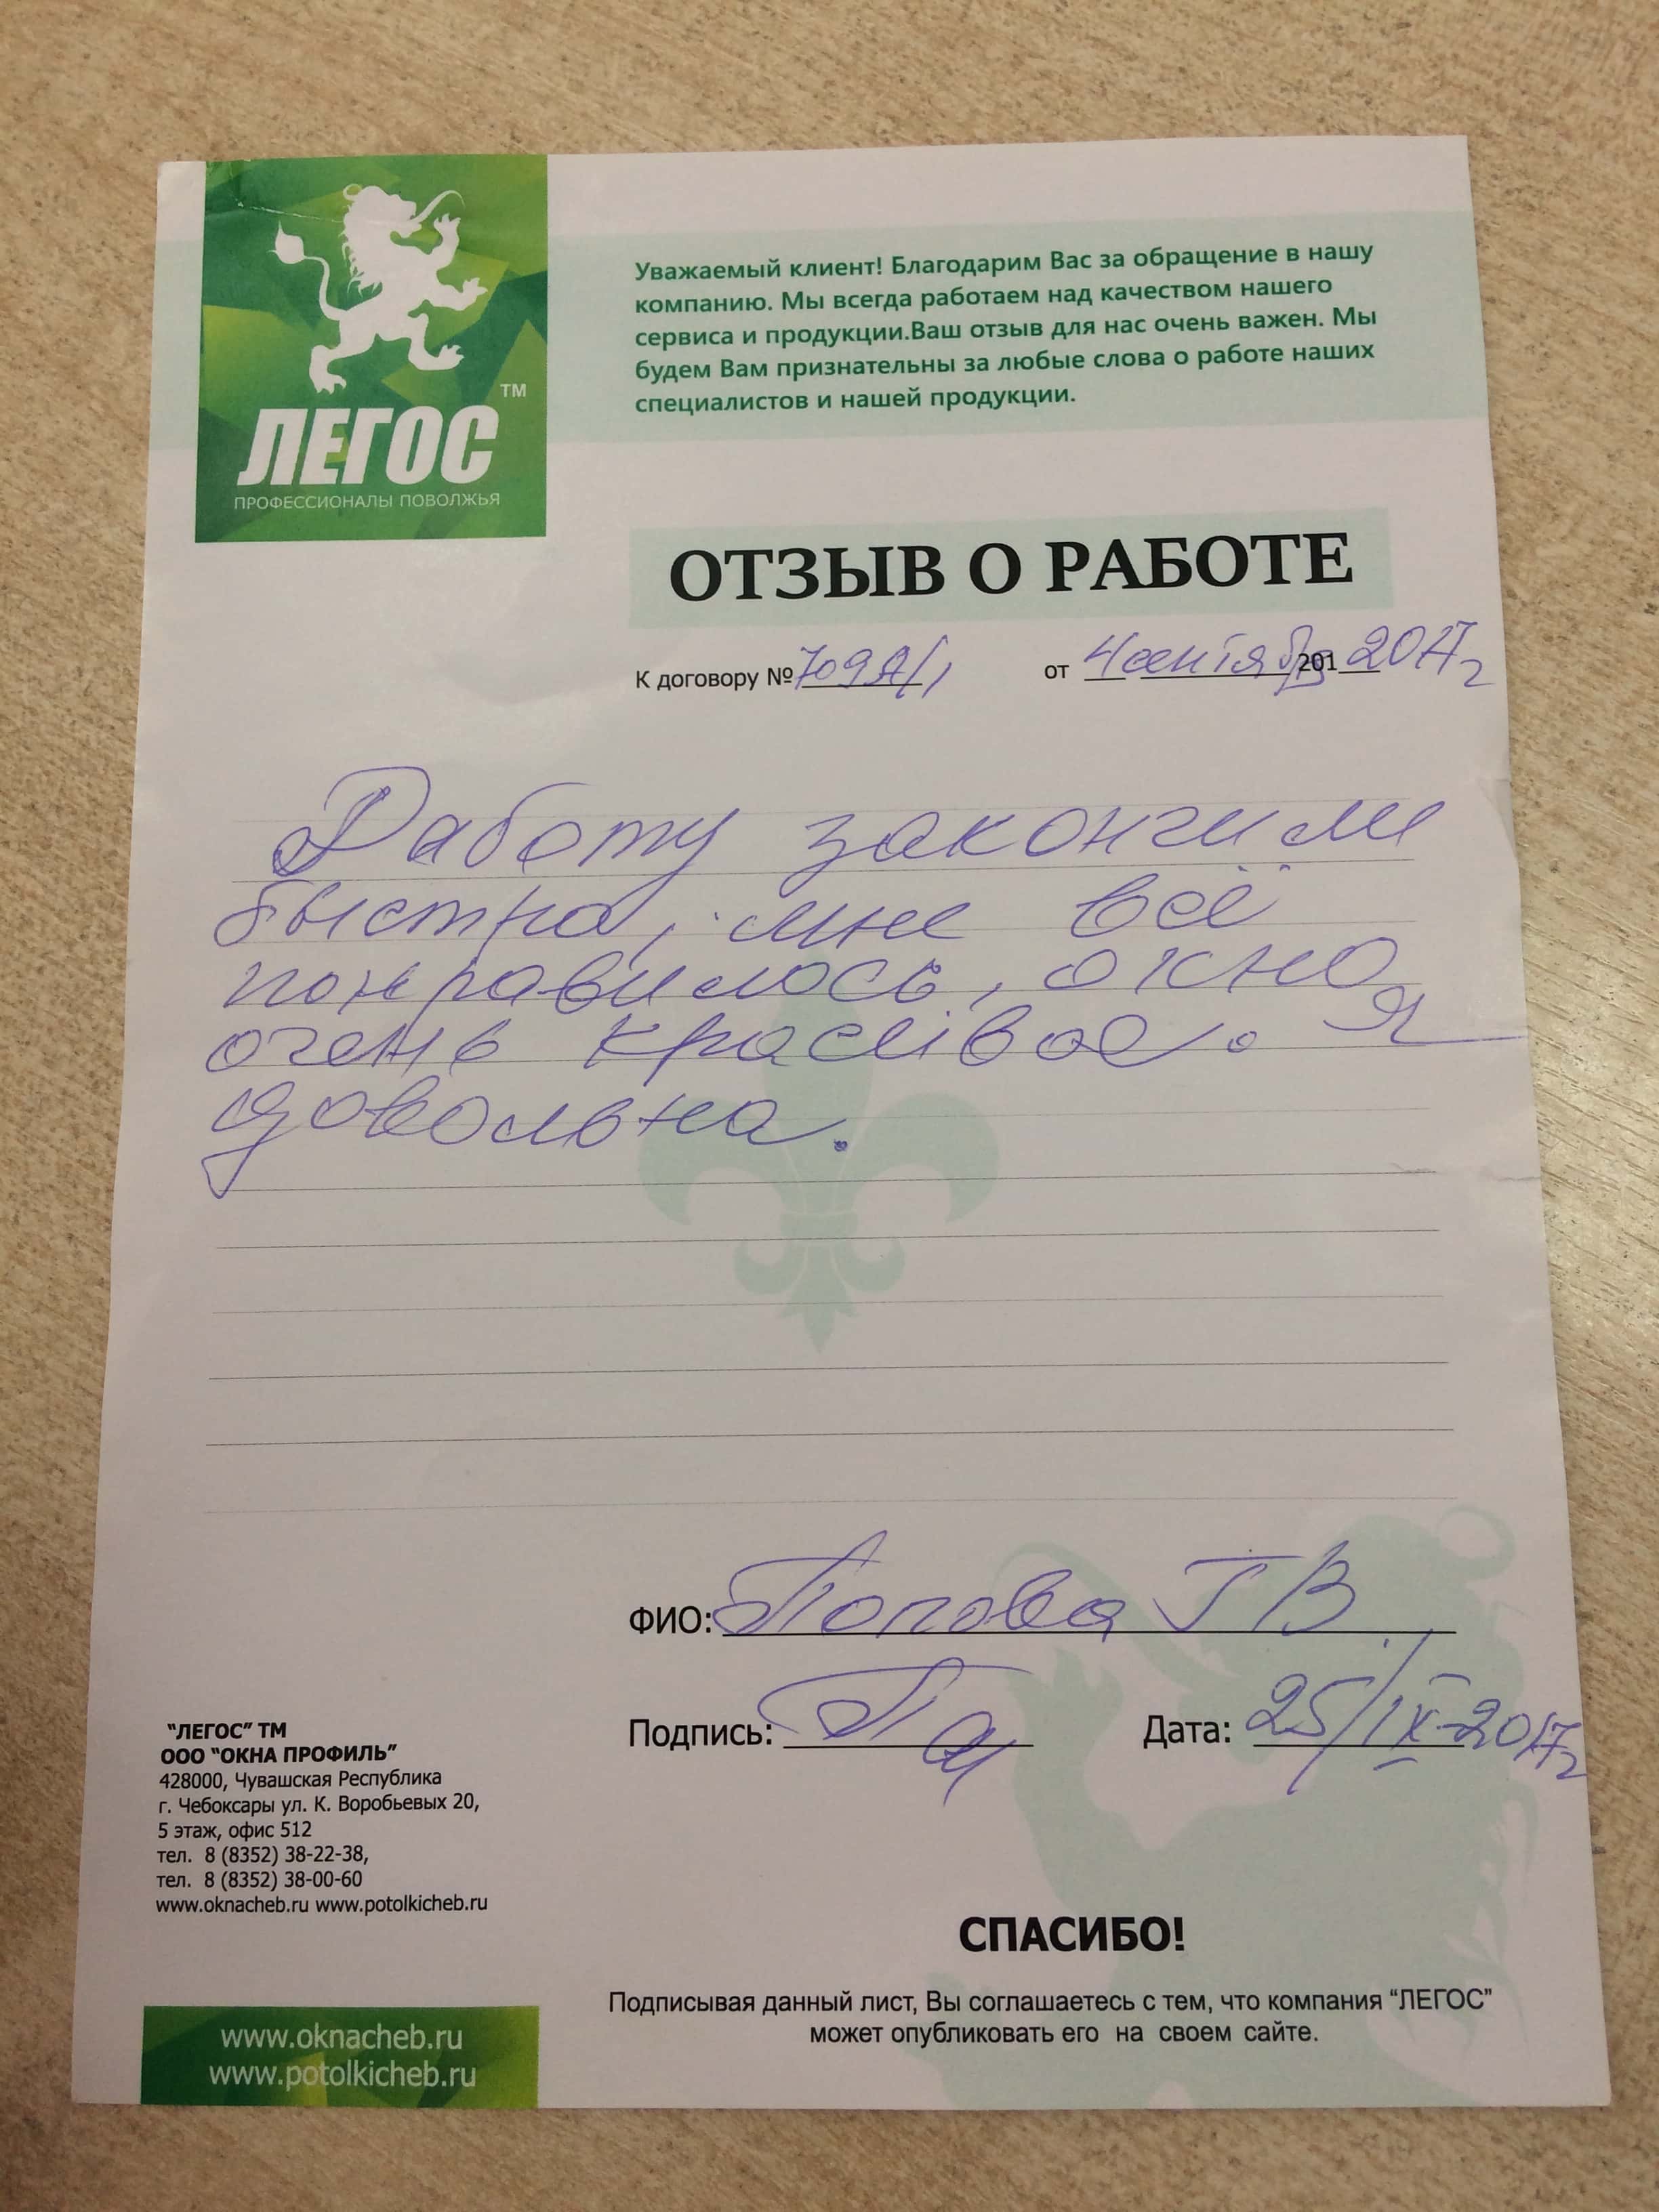 ЛЕГОС ТМ
ПРОФЕССИОНАЛЫ ПОВОЛЖЬЯ
Уважаемый клиент! Благодарим Вас за обращение в нашу
компанию. Мы всегда работаем над качеством нашего
сервиса и продукции.Ваш отзыв для нас очень важен. Мы
будем Вам признательны за любые слова о работе наших
специалистов и нашей продукции.
ОТЗЫВ О РАБОТЕ
К договору № 709А/1 от 4 сентября 201 2017г
Работу закончили
быстро, мне всё
понравилось, окно
очень красивое. Я
довольна.
ФИО: Попова Г В.
Подпись: Дата: 25/IX-2017г
"ЛЕГОС" ТМ
ООО "ОКНА ПРОФИЛЬ"
428000, Чувашская Республика
г. Чебоксары ул. К. Воробьевых 20,
5 этаж, офис 512
тел. 8 (8352) 38-22-38,
тел. 8 (8352) 38-00-60
www.oknacheb.ru www.potolkicheb.ru
СПАСИБО!
Подписывая данный лист, Вы соглашаетесь с тем, что компания "ЛЕГОС"
может опубликовать его на своем сайте.
www.oknacheb.ru
www.potolkicheb.ru